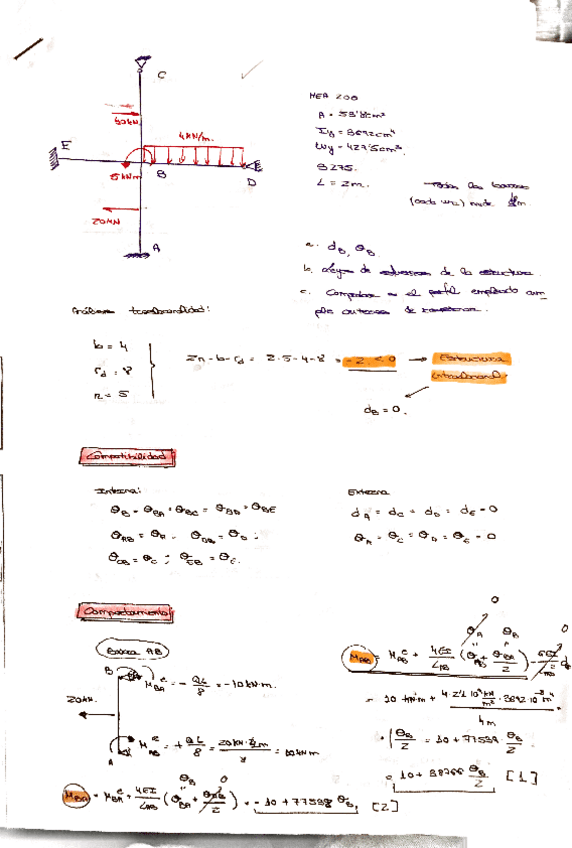 C
40kN
4kN/m.
E
5kNm
B
D
20kN
A
HEA 200
A = 53'8cm²
Iy = 3692cm⁴
Wy = 427'5cm³
S275.
L = 2m.
Todas las barras
(cada una) mide 4m.
a. dB, θB.
b. Leyes de esfuerzos de la estructura.
c. Comprobar si el perfil empleado cum-
ple criterios de resistencia.
Análisis traslacionalidad:
b = 4
rd = 8
n = 5
2n - b - rd = 2·5 - 4 - 8 = -2 < 0 → Estructura
intraslacional
dB = 0.
Compatibilidad
Interna:
θB = θBA = θBC = θBD = θBE
θAB = θA · θDB = θD ;
θCB = θC ; θEB = θE.
Externa
dA = dC = dD = dE = 0
θA = θC = θD = θE = 0
Comportamiento
Barra AB
B
20kN.
A
MᵉBA = - QL/8 = -10kN·m.
MᵉAB = + QL/8 = 20kN·4m/8 = 10kNm
MBA = MᵉBA + 4EI/LAB (θBA + θAB/2) = -10 + 77539 θB, [2]
MAB = MᵉAB + 4EI/LAB (θAB + θBA/2) - 6EI
= 10 kN·m + 4·2'1·10⁸ kN/m² · 3692·10⁻⁸ m⁴ / 4m
· (θB/2 = 10 + 77539 · θB/2
= 10 + 38766 θB [1]